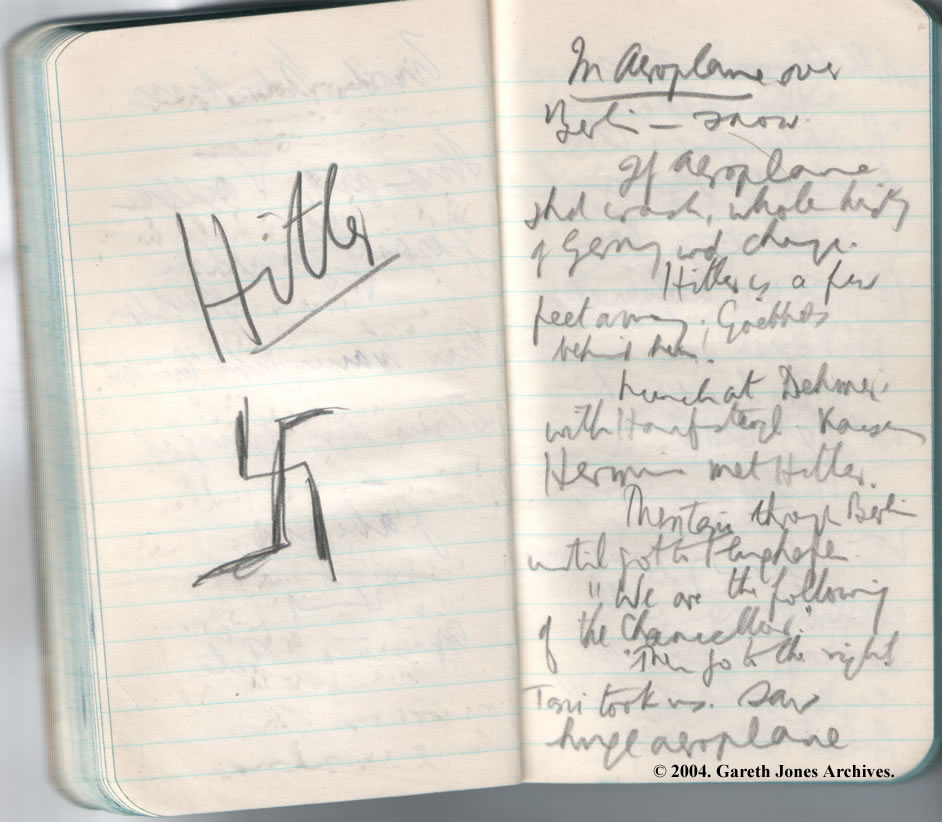 Hitler
In Aeroplane over
Berlin – snow.
If Aeroplane
shd crash, whole
of wd change.
Hitler is a few
feet away; Goebbels
behind him!
Lunch at
with Hanfstaengl.
met Hitler.
Then taxi through Berlin
until got to Flughafen
"We are the following
of the Chancellor."
"Then go to the right
Taxi took us. Saw
huge aeroplane
© 2004. Gareth Jones Archives.